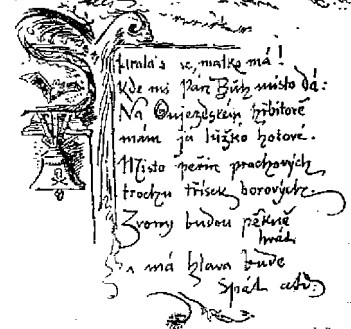 se, matko má!
Kde mi Pán Bůh místo dá:
Na hřbitově
mám já lůžko hotové.
Místo peřin prachových
trochu třísek borových.
Zvony budou pěkně
hrát
a má hlava bude
spát atd.